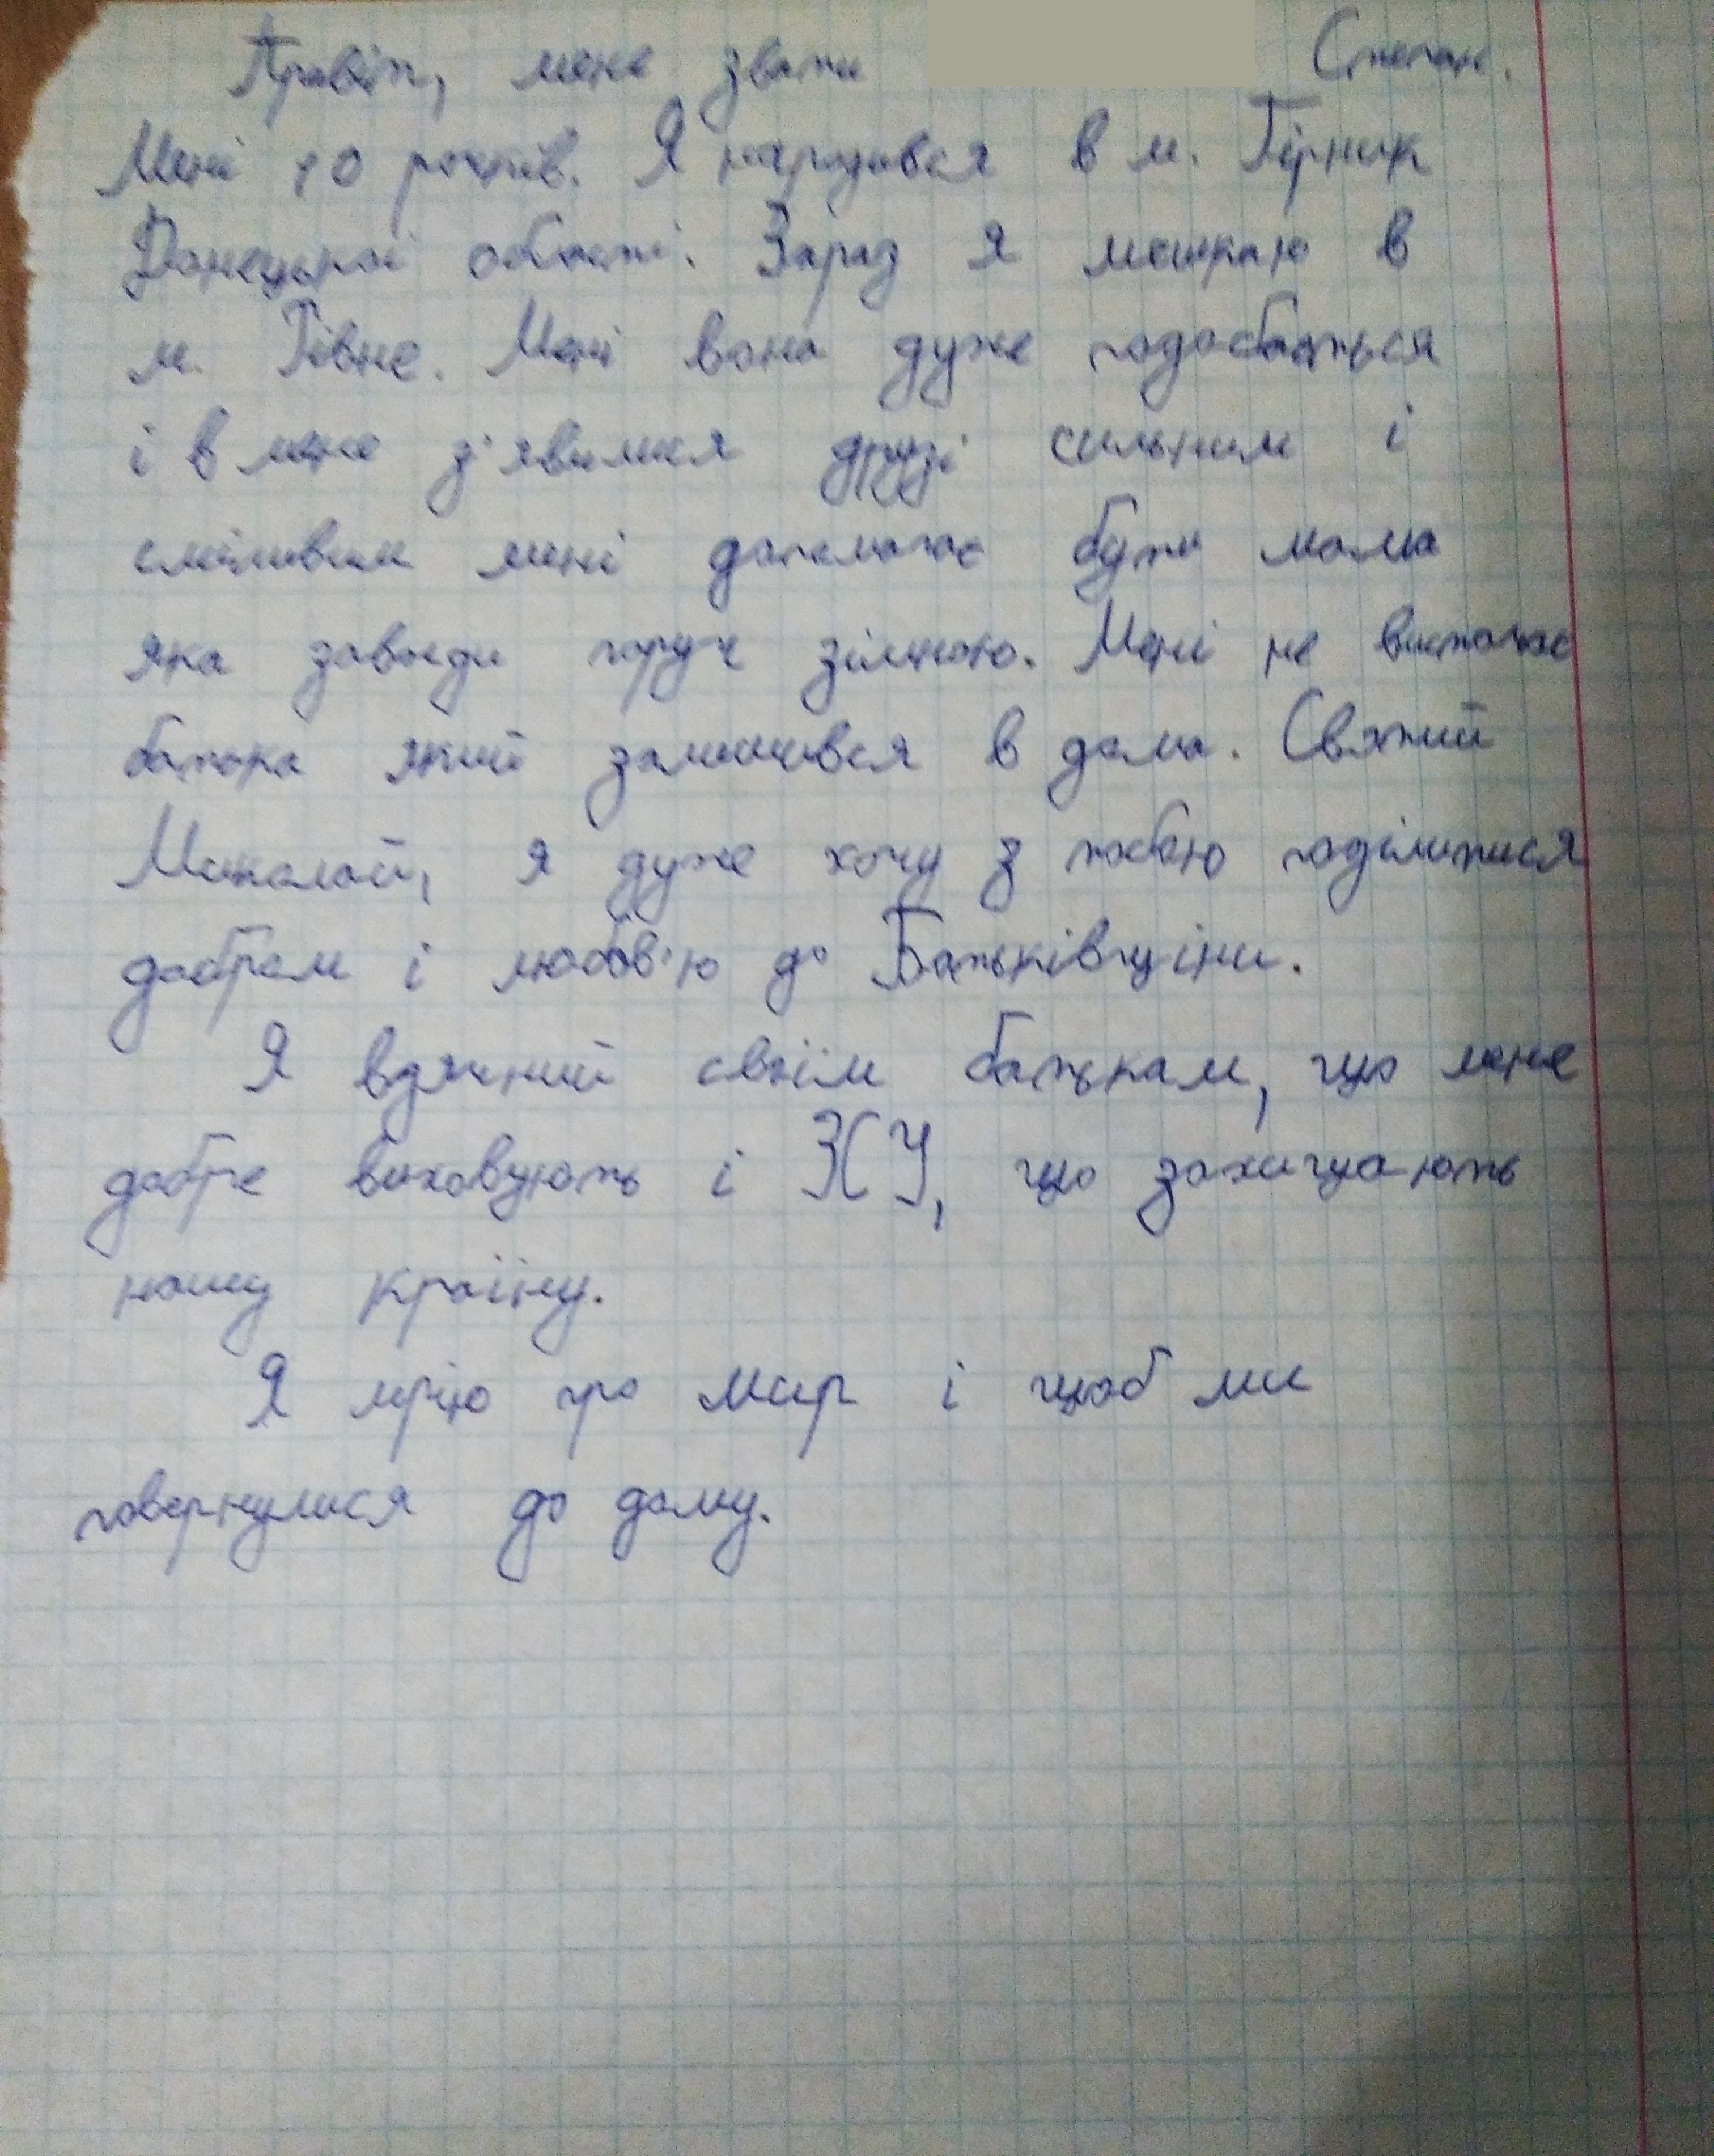 Привіт, мене звати Степан.
Мені 10 років. Я народився в м. Гірник
Донецької області. Зараз я мешкаю в
м. Рівне. Мені вона дуже подобається
і в мене з'явилися друзі сильним і
сміливим мені допомогає бути мама
яка завжди поруч зімною. Мені не вистачає
батька який залишився в дома. Святий
Миколай, я дуже хочу з тобою поділитися
добром і любов'ю до Батьківщіни.
Я вдячний своїм батькам, що мене
добре виховують і ЗСУ, що захищають
нашу країну.
Я мрію про мир і щоб ми
повернулися до дому.